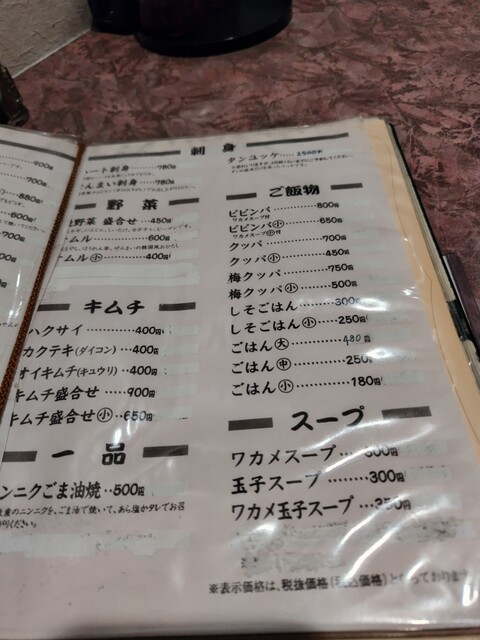 刺身
ート刺身 780円
んまい刺身 780円
タンユッケ
野菜
野菜 盛合せ 450円
ムル 600円
ムル(小) 400円
キムチ
ハクサイ 400円
カクテキ(ダイコン) 400円
オイキムチ(キュウリ) 400円
キムチ盛合せ 900円
キムチ盛合せ(小) 650円
一品
ンニクごま油焼 500円
のニンニクを、ごま油で焼いて、あら塩かタレでお召
ください。
ご飯物
ビビンバ 800円
ワカメスープ付
ビビンバ(小) 650円
ワカメスープ(小)付
クッパ 700円
クッパ(小) 450円
梅クッパ 750円
梅クッパ(小) 500円
しそごはん 300円
しそごはん(小) 250円
ごはん(大) 480円
ごはん(中) 250円
ごはん(小) 180円
スープ
ワカメスープ 300円
玉子スープ 300円
ワカメ玉子スープ 350円
※表示価格は、税抜価格(税込価格)となっております
900円
700円